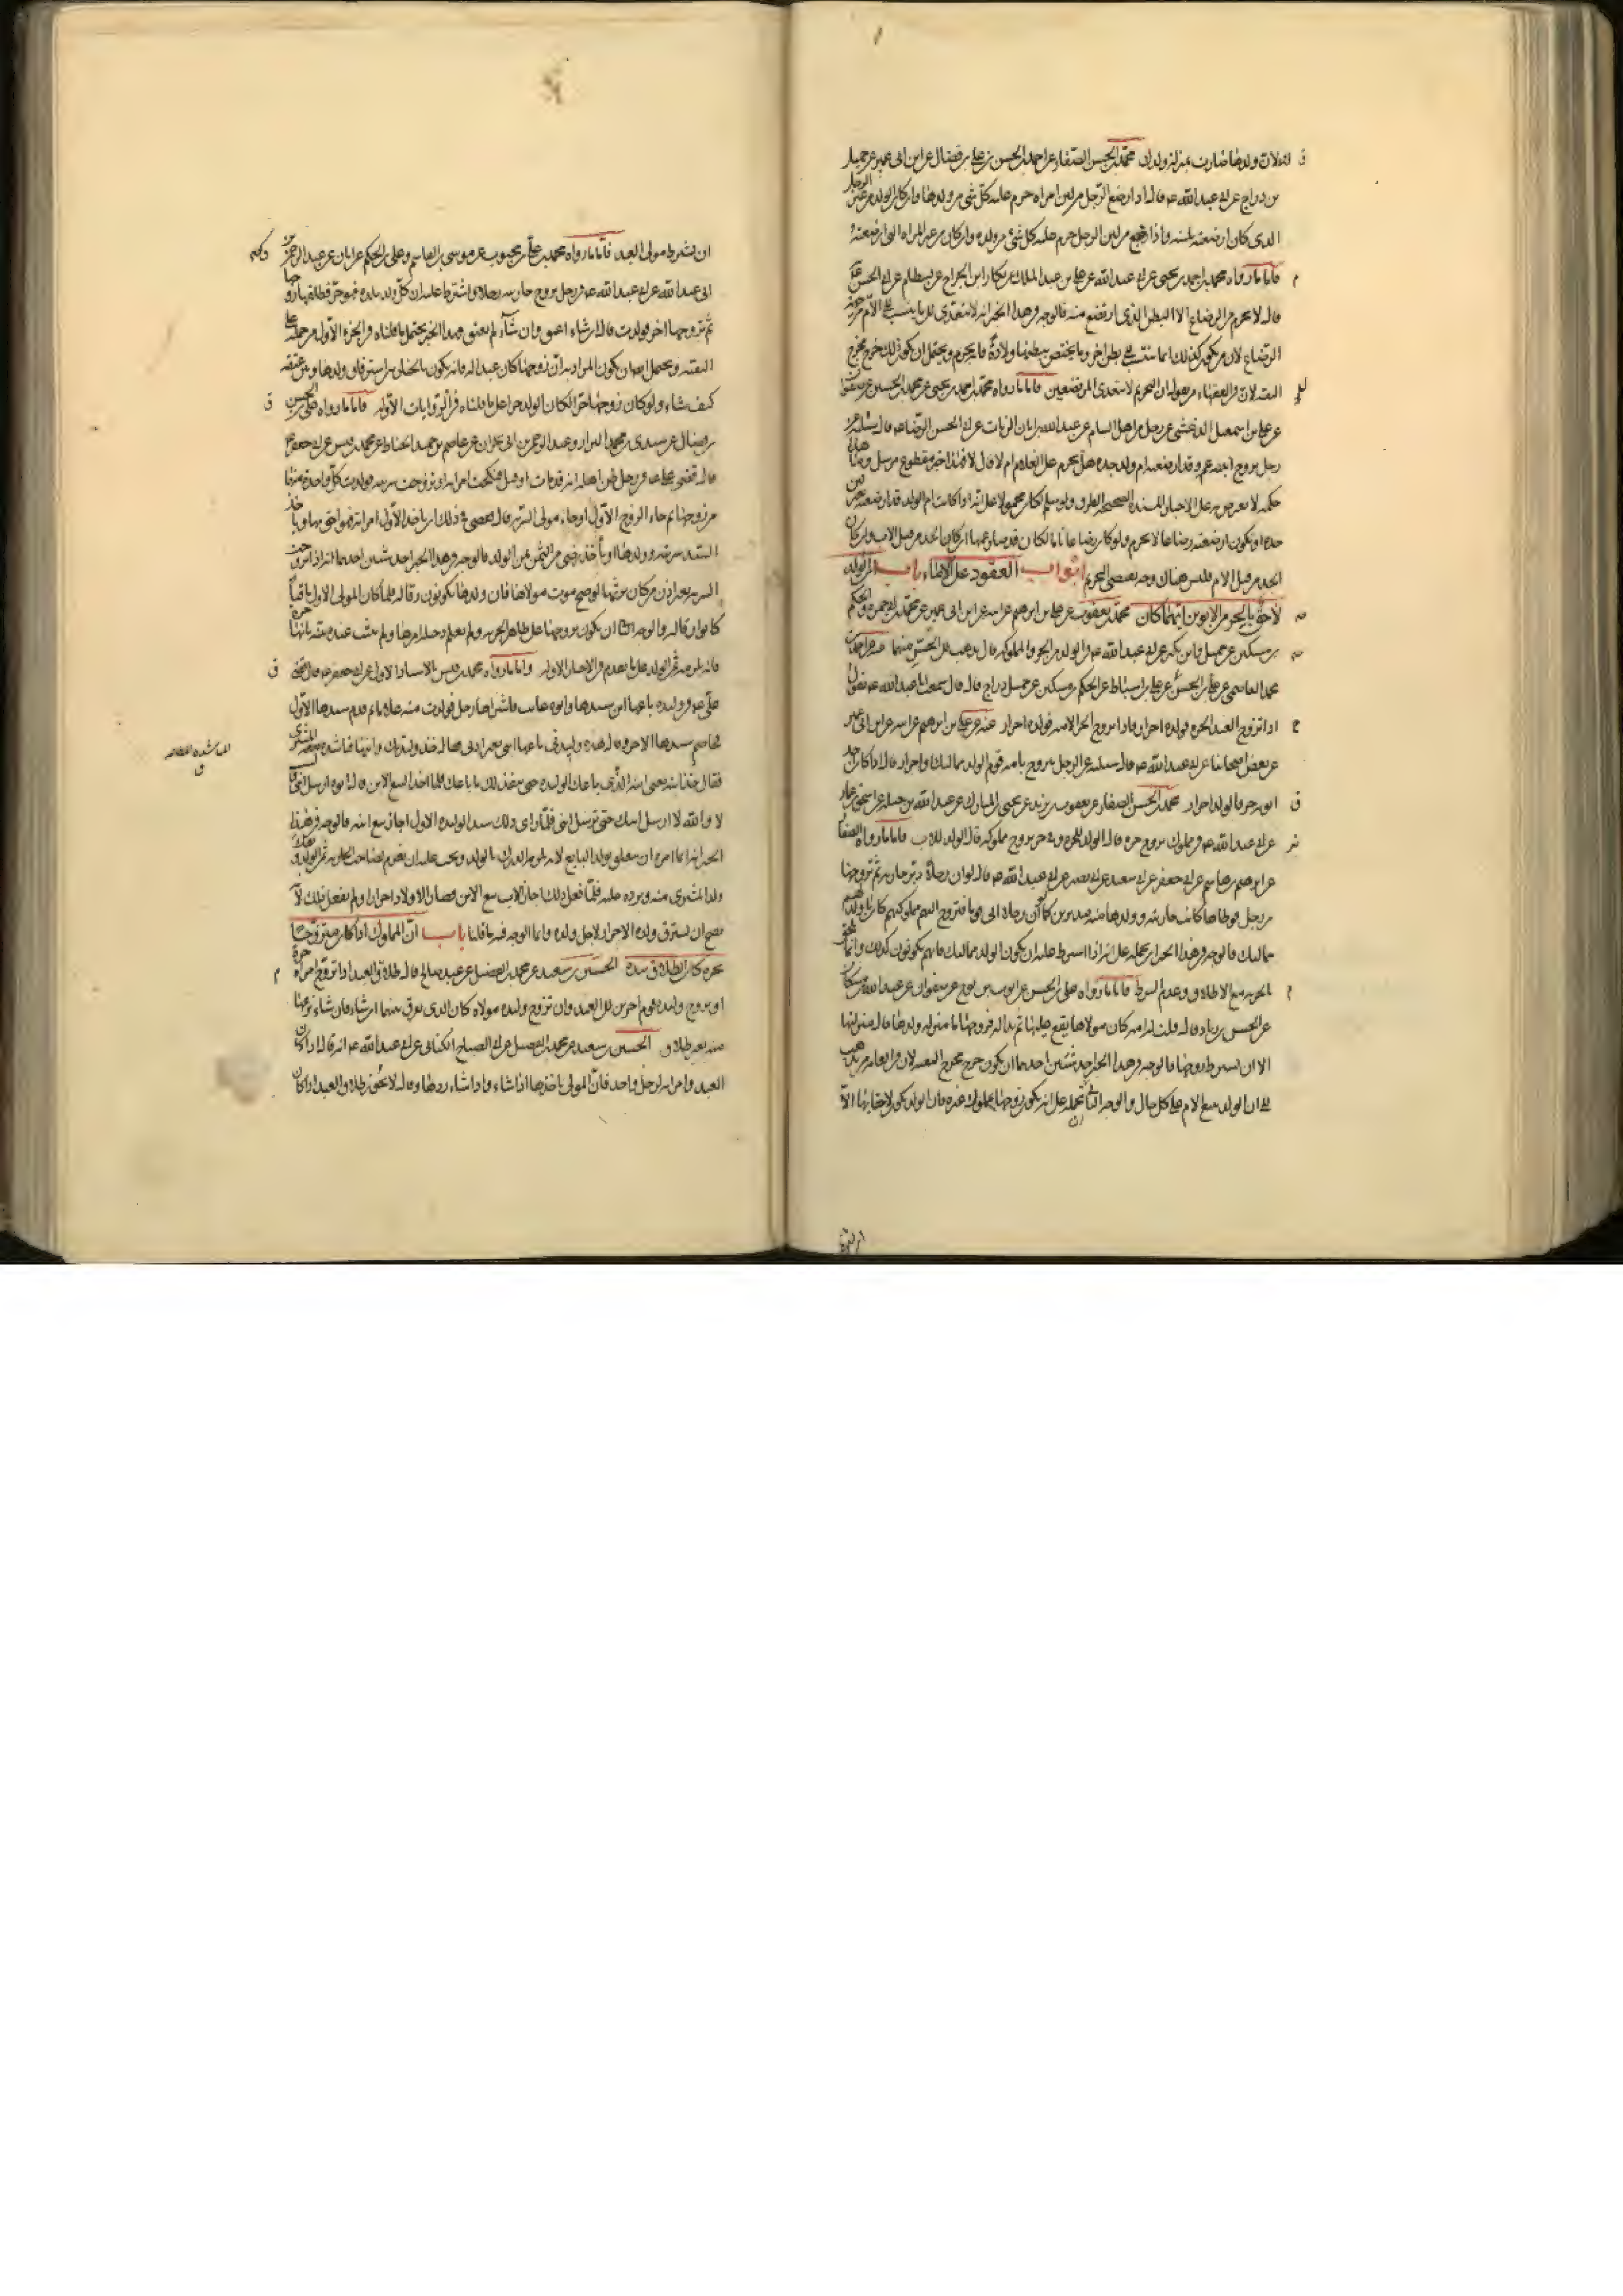 لان ولدها صارت بمنزلة ولدك محمد بن الحسن الصفار عن احمد بن الحسن بن علي بن فضال عن ابن ابي عمير عن جميل
بن دراج عن ابي عبد الله ع قال اذا رضع الرجل من لبن امراة حرم عليه كل شئ من ولدها وان كان الولد من غير الرجل
الذي كان ارضعته بلبنه واذا رضع من لبن الرجل حرم عليه كل شئ من ولده وان كان من غير المراة التي ارضعته
فاما ما رواه محمد بن احمد بن يحيى عن ابي عبد الله عن علي بن عبد الملك عن بكار بن الجراح عن بسطام عن ابي الحسن ع
قال لا يحرم من الرضاع الا البطن الذي ارتضع منه فالوجه في هذا الخبر انه لا يتعدى الى ما ينسب الى الام من جهة
الرضاع لان من يكون كذلك انما ينتسب الى بطن اخر وما يختص ببطنها ولادة فانه يحرم ويحتمل ان يكون ذلك خرج مخرج
التقية لان في الفقهاء من يقول ان التحريم لا يتعدى المرتضعين فاما ما رواه محمد بن احمد بن يحيى عن محمد بن الحسين عن صفوان
عن علي بن اسمعيل الدغشي عن رجل من اهل الشام عن عبد الله بن ابان الزيات عن ابي الحسن الرضا ع قال سالته عن
رجل تزوج ابنة عمه وقد ارضعته ام ولد جده هل تحرم على الغلام ام لا قال لا فهذا خبر مقطوع مرسل وما هذا
حكمه لا يعترض به على الاخبار المسندة الصحيحة الطرق ولو سلم لكان محمولا على انه اذا كانت ام الولد قد ارضعته بلبن غير
جده او يكون ارضعته رضاعا لا يحرم ولو كان رضاعا تاما لكان قد صار عمها ان كان الجد من قبل الاب وان كان
الجد من قبل الام فليس هناك وجه يقتضي التحريم ابواب العقود على الاماء باب ان الولد
لاحق بالحر من الابوين ايهما كان محمد بن يعقوب عن علي بن ابرهيم عن ابيه عن ابن ابي عمير عن محمد بن ابي حمزة والحكم
بن مسكين عن جميل وابن بكير عن ابي عبد الله ع في الولد من الحر والمملوكة قال يذهب الى الحر منهما عنه عن احمد بن
محمد العاصمي عن علي بن الحسن عن علي بن اسباط عن الحكم بن مسكين عن جميل بن دراج قال قال سمعت ابا عبد الله ع يقول
اذا تزوج العبد الحرة فولده احرار واذا تزوج الحر الامة فولده احرار عنه عن علي بن ابرهيم عن ابيه عن ابن ابي عمير
عن بعض اصحابنا عن ابي عبد الله ع قال سالته عن الرجل يتزوج بامة قوم الولد مماليك او احرار قال اذا كان احد
ابويه حر فالولد احرار محمد بن الحسن الصفار عن يعقوب بن يزيد عن يحيى بن المبارك عن عبد الله بن جبلة عن اسحق بن عمار
عن ابي عبد الله ع في مملوك تزوج حرة قال الولد للحرة وفي حر تزوج مملوكة قال الولد للاب فاما ما رواه الصفار
عن ابرهيم بن هاشم عن ابي جعفر عن ابي سعيد عن ابي بصير عن ابي عبد الله ع قال لو ان رجلا دبر جارية ثم زوجها
من رجل فوطاها كانت جاريته وولدها منه مدبرين كما لو ان رجلا اتى قوما فتزوج اليهم مملوكتهم كان ما ولد لهم
مماليك فالوجه في هذا الخبر ان نحمله على انه اذا اشترط عليه ان يكون الولد مماليك فانهم يكونون كذلك وانما يلحق
بالحرية مع الاطلاق وعدم الشرط فاما ما رواه علي بن الحسن عن ايوب بن نوح عن صفوان عن عبد الله بن مسكان
عن الحسن بن زياد قال قلت له امة كان مولاها يقع عليها ثم بدا له فزوجها ما منزلة ولدها قال بمنزلتها
الا ان يشترط زوجها فالوجه في هذا الخبر احد شيئين احدهما ان يكون خرج مخرج التقية لان في العامة من يذهب
الى ان الولد يتبع الام على كل حال والوجه الثاني ان نحمله على انه يكون زوجها بمملوك غيره فان الولد يكون لاحقا بها الا
ان يشترط مولى العبد فاما ما رواه محمد بن علي بن محبوب عن موسى بن القاسم وعلي بن الحكم عن ابان عن عبد الرحمن بن
ابي عبد الله عن ابي عبد الله ع في رجل يزوج جاريته رجلا واشترط عليه ان كل ولد تلده فهو حر فطلقها زوجها
ثم تزوجها اخر فولدت قال ان شاء اعتق وان شاء لم يعتق فهذا الخبر يحتمل ما قلناه في الخبر الاول من حمله على
التقية ويحتمل ايضا ان يكون المراد به ان زوجها كان عبدا له فانه يكون بالخيار بين استرقاق ولدها وبين عتقه
كيف شاء ولو كان زوجها حرا لكان الولد حرا على ما قلناه في الروايات الاولة فاما ما رواه علي بن الحسن
بن فضال عن سندي بن محمد البزاز وعبد الرحمن بن ابي نجران عن عاصم بن حميد الحناط عن محمد بن قيس عن ابي جعفر ع
قال قضى علي ع في رجل ظن اهله انه قد مات او قتل فنكحت امراته وتزوجت سريته فولدت كل واحدة منهما
من زوجها ثم جاء الزوج الاول او جاء مولى السرية قال فقضى في ذلك ان ياخذ الاول امراته فهو احق بها وياخذ
السيد سريته وولدها او ياخذ رضى من الثمن ثمن الولد فالوجه في هذا الخبر احد شيئين احدهما انه اذا تزوجت
السرية بعد اذن من كان يرثها لو صح موت مولاها فان ولدها يكونون رقا له فلما كان المولى الاول باقيا
كانوا رقا له والوجه الثاني ان يكون تزوجها على ظاهر الحرية ولم يعلم دخلة امرها ولم يثبت عنده بينة بانها حرة
فانه يلزمه ثمن الولد على ما تقدم في الاخبار الاولة واما ما رواه محمد بن قيس بالاسناد الاول عن ابي جعفر ع قال قضى
علي ع في وليدة باعها ابن سيدها وابوه غايب فاشتراها رجل فولدت منه غلاما ثم قدم سيدها الاول
فخاصم سيدها الاخر وقال هذه وليدتي باعها ابني بغير اذني فقال خذ وليدتك وابنها فناشده المشترى
فقال خذ ابنه يعني ابنه الذي باعك الوليدة حتى ينفذ لك ما باعك فلما اخذ البيع الابن قال ابوه ارسل ابني فقال
لا والله لا ارسل ابنك حتى ترسل ابني فلما راى ذلك سيد الوليدة الاول اجاز بيع ابنه فالوجه في هذا
الخبر انه انما امره ان يتعلق بولده البايع لانه يلزمه الدرك بالولد ويجب عليه ان يغرم لصاحب الجارية ثمن الولد ويفك
ولد المشترى منه ويرده عليه فلما فعل ذلك اجاز الاب بيع الابن فصار الاولاد احرارا ولو لم يفعل ذلك لما
صح ان يسترق ولده الاحرار لاجل ولده وانما الوجه فيه ما قلنا باب ان المملوك اذا كان متزوجا
بحرة كان الطلاق بيده الحسين بن سعيد عن محمد بن الفضيل عن عبد صالح ع قال طلاق العبد اذا تزوج امراة حرة
او تزوج وليدة قوم اخرين الى العبد وان تزوج وليدة مولاه كان الذي يفرق بينهما ان شاء وان شاء نزعها
منه بغير طلاق الحسين بن سعيد عن محمد بن الفضيل عن ابي الصباح الكناني عن ابي عبد الله ع انه قال اذا كان
العبد وامراته لرجل واحد فان المولى ياخذها اذا شاء واذا شاء ردها وقال لا يجوز طلاق العبد اذا كان